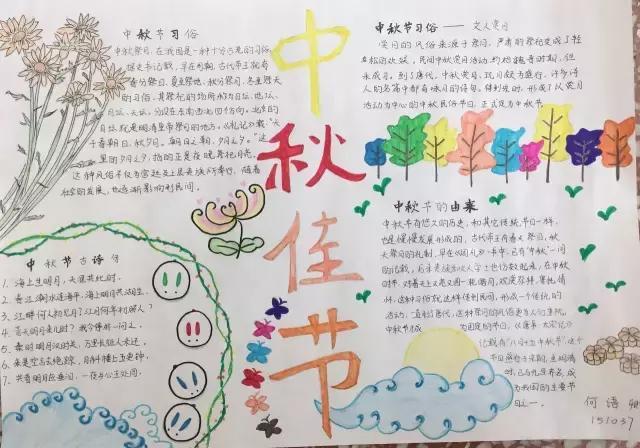 中秋佳节
中秋节习俗
中秋祭月,在我国是一种十分古老的习俗。
据史书记载,早在周朝,古代帝王就有
春分祭日、夏至祭地、秋分祭月、冬至祭天
的习俗。其祭祀的场所称为日坛、地坛、
月坛、天坛。分设在东南西北四个方向。北京的
月坛就是明清皇帝祭月的地方。《礼记》载:"天
子春朝日,秋夕月。朝日之朝,夕月之夕。"这
里的夕月之夕,指的正是夜晚祭祀月亮。
这种风俗不仅为宫廷及上层贵族所奉行,随着
社会的发展,也逐渐影响到民间。
中秋节习俗——文人赏月
赏月的风俗来源于祭月,严肃的祭祀变成了轻
松的欢娱。民间中秋赏月活动约始魏晋时期,但
未成习。到了唐代,中秋赏月、玩月颇为盛行,许多诗
人的名篇中都有咏月的诗句。待到宋时,形成了以赏月
活动为中心的中秋民俗节日,正式定为中秋节。
中秋节古诗句
1、海上生明月,天涯共此时。
2、春江潮水连海平,海上明月共潮生。
3、江畔何人初见月?江月何年初照人?
4、青天有月来几时?我今停杯一问之。
5、秦时明月汉时关,万里长征人未还。
6、来是空言去绝踪,月斜楼上五更钟。
7、共看明月应垂泪,一夜乡心五处同。
中秋节的由来
中秋节有悠久的历史,和其它传统节日一样,
也是慢慢发展形成的,古代帝王有春天祭日,秋
天祭月的礼制,早在《周礼》一书中,已有"中秋"一词
的记载。后来贵族和文人学士也仿效起来,在中秋
时节,对着天上又亮又圆一轮皓月,观赏祭拜,寄托情
怀,这种习俗就这样传到民间,形成一个传统的
活动,直到了唐代,这种祭月的风俗更为人们重视,
中秋节才成为固定的节日,《唐书·太宗记》
记载有"八月十五中秋节",这个
节日盛行于宋朝,至明清
时,已与元旦齐名,成
为我国的主要节
日之一。
何语
151037